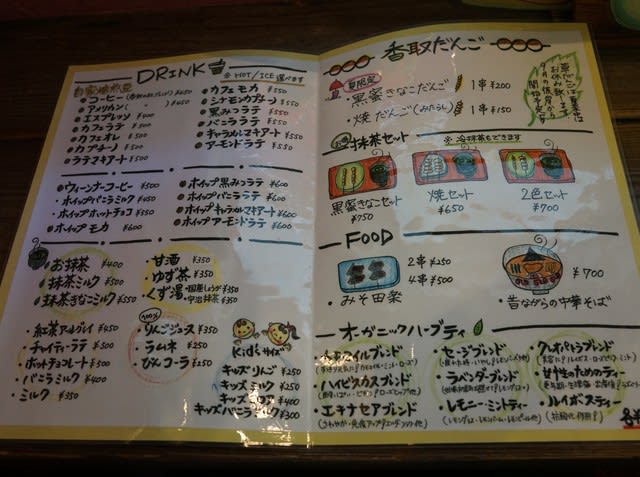 DRINK
※ HOT/ICE選べます
自家焙煎豆
コーヒー ¥450
アメリカン ¥450
エスプレッソ ¥400
カフェラテ ¥500
カフェオレ ¥500
カプチーノ ¥500
ラテマキアート ¥500
カフェモカ ¥550
シナモンカプチーノ ¥550
黒みつラテ ¥550
バニララテ ¥550
キャラメルマキアート ¥550
アーモンドラテ ¥550
ウィンナーコーヒー ¥500
ホイップバニラミルク ¥450
ホイップホットチョコ ¥550
ホイップ モカ ¥600
ホイップ黒みつラテ ¥600
ホイップバニララテ ¥600
ホイップキャラメルマキアート ¥600
ホイップアーモンドラテ ¥600
お抹茶 ¥400
抹茶ミルク ¥500
抹茶きなこミルク ¥550
甘酒 ¥350
ゆず茶 ¥350
くず湯・国産しょうが ¥350
・宇治抹茶 ¥350
紅茶アールグレイ ¥450
チャイティーラテ ¥300
ホットチョコレート ¥500
バニラミルク ¥400
ミルク ¥350
100%
りんごジュース ¥350
ラムネ ¥250
びんコーラ ¥250
Kid's サイズ
キッズりんご ¥250
キッズミルク ¥250
キッズ ¥400
キッズバニラミルク ¥300
香取だんご
夏限定
・黒蜜きなこだんご 1串¥200
・焼だんご(みたらし) 1串¥150
草だんごは夏季
お休み致します
9月の涼風から
開始予定
お抹茶セット
※ 冷抹茶もできます
黒蜜きなこセット
¥750
焼セット
¥650
2色セット
¥700
FOOD
2串 ¥250
4串 ¥500
・みそ田楽
¥700
・昔ながらの中華そば
オーガニックハーブティ
・カモマイルブレンド
・ハイビスカスブレンド
・エキナセアブレンド
・セージブレンド
・ラベンダーブレンド
・レモニーミントティー
・クレオパトラブレンド
・甘性のためのティー
・ルイボスティー